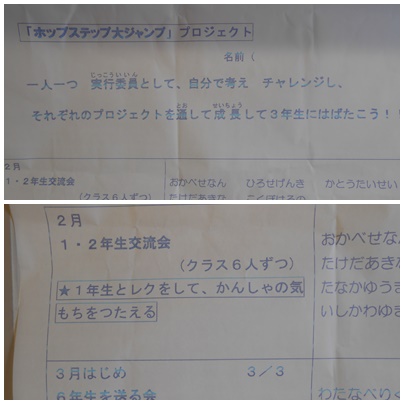 「ホップステップ★ジャンプ」プロジェクト
名前（
一人一つ　実行委員として、自分で考え　チャレンジし、
それぞれのプロジェクトを通して成長して３年生にはばたこう！
２月
１・２年生交流会
（クラス６人ずつ）
おかべせなん　ひろせげんき　かとうたいせい
２月
１・２年生交流会
（クラス６人ずつ）
★１年生とレクをして、かんしゃの気
もちをつたえる
おかべせな
たけだあき
たなかゆう
いしかわゆ
３月はじめ　３／３
６年生を送る会
わたなべり